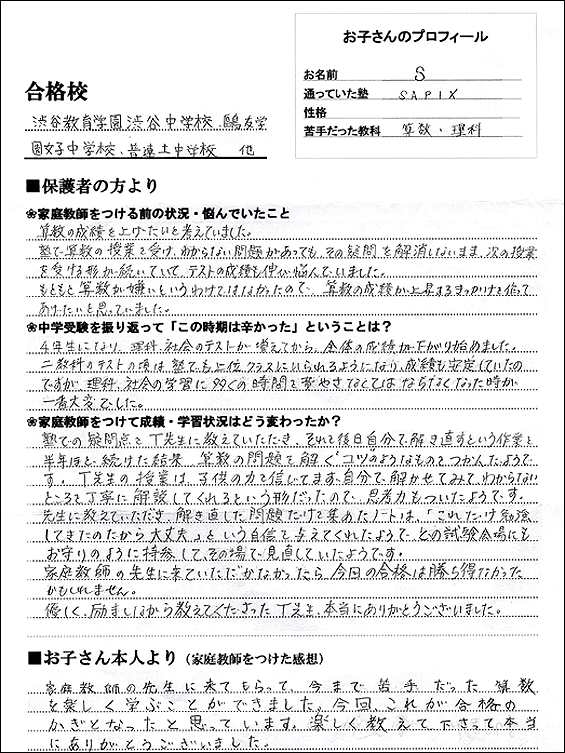 お子さんのプロフィール
お名前 S
通っていた塾 SAPIX
性格
苦手だった教科 算数・理科
合格校
渋谷教育学園渋谷中学校、鷗友学
園女子中学校、普連土中学校 他
■保護者の方より
❀家庭教師をつける前の状況・悩んでいたこと
算数の成績を上げたいと考えていました。
塾で算数の授業を受け、わからない問題があっても、その疑問を解消しないまま、次の授業
を受ける形が続いていて、テストの成績も伸び悩んでいました。
もともと算数が嫌いというわけではなかったので、算数の成績が上昇するきっかけを作って
あげたいと思っていました。
❀中学受験を振り返って「この時期は辛かった」ということは?
4年生になり、理科、社会のテストが増えてから、全体の成績が下がり始めました。
二教科のテストの頃は、塾でも上位クラスにいられるようになり、成績も安定していたの
ですが、理科、社会の学習に多くの時間を費やさなくてはならなくなった時が
一番大変でした。
❀家庭教師をつけて成績・学習状況はどう変わったか?
塾での疑問点をT先生に教えていただき、それを後日自分で解き直すという作業を
半年ほど続けた結果、算数の問題を解くコツのようなものをつかんだようで
す。T先生の授業は、子供の力を信じてまず自分で解かせてみて、わからない
ところを丁寧に解説してくれるという形だったので、思考力もついたようです。
先生に教えていただき、解き直した問題だけを集めたノートは、「これだけ勉強
してきたのだから大丈夫。」という自信を与えてくれたようで、どの試験会場にも
お守りのように持参して、その場で見直していたようです。
家庭教師の先生に来ていただかなかったら、今回の合格は勝ち得なかった
かもしれません。
優しく、励ましながら教えてくださったT先生、本当にありがとうございました。
■お子さん本人より(家庭教師をつけた感想)
家庭教師の先生に来てもらって、今まで苦手だった算数
を楽しく学ぶことができました。今回、これが合格の
かぎとなったと思っています。楽しく教えて下さって本当
にありがとうございました。